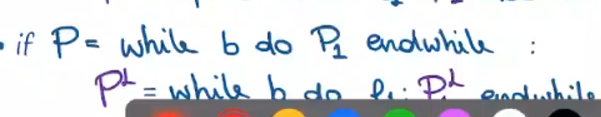 • if P = while b do P₁ endwhile :
P^L = while b do P₁^L endwhile